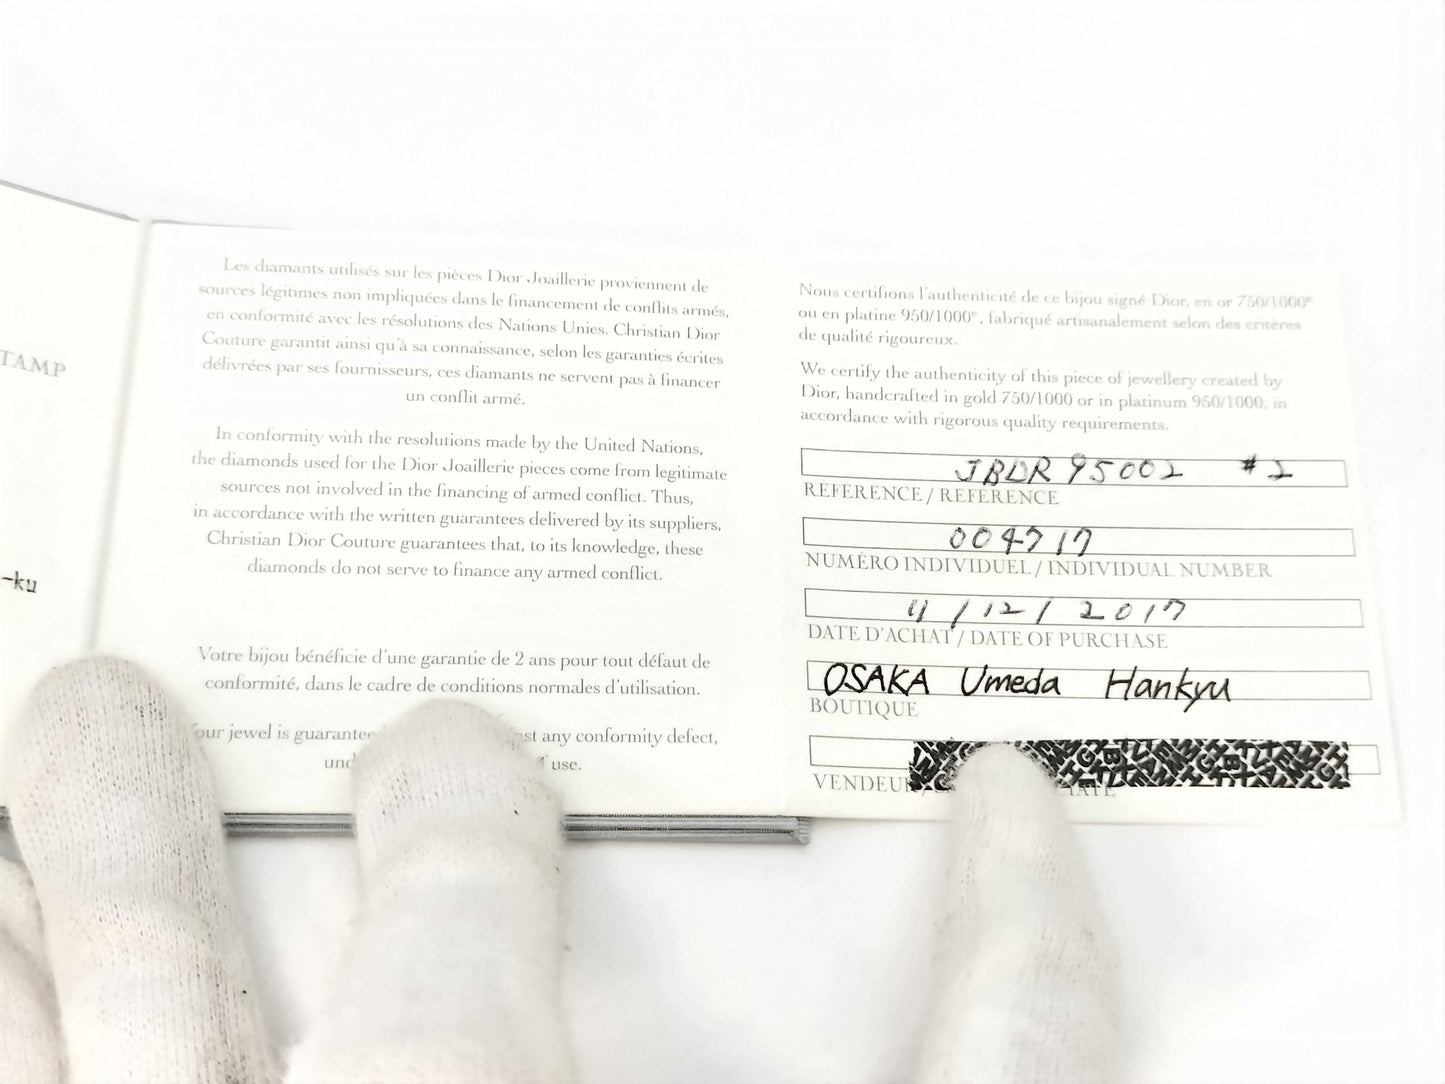 TAMP
-ku
Les diamants utilisés sur les pièces Dior Joaillerie proviennent de
sources légitimes non impliquées dans le financement de conflits armés,
en conformité avec les résolutions des Nations Unies. Christian Dior
Couture garantit ainsi qu'à sa connaissance, selon les garanties écrites
délivrées par ses fournisseurs, ces diamants ne servent pas à financer
un conflit armé.
In conformity with the resolutions made by the United Nations,
the diamonds used for the Dior Joaillerie pieces come from legitimate
sources not involved in the financing of armed conflict. Thus,
in accordance with the written guarantees delivered by its suppliers,
Christian Dior Couture guarantees that, to its knowledge, these
diamonds do not serve to finance any armed conflict.
Votre bijou bénéficie d'une garantie de 2 ans pour tout défaut de
conformité, dans le cadre de conditions normales d'utilisation.
our jewel is guarantee st any conformity defect,
und use.
Nous certifions l'authenticité de ce bijou signé Dior, en or 750/1000e
ou en platine 950/1000e, fabriqué artisanalement selon des critères
de qualité rigoureux.
We certify the authenticity of this piece of jewellery created by
Dior, handcrafted in gold 750/1000 or in platinum 950/1000, in
accordance with rigorous quality requirements.
JBDR95002 #2
REFERENCE / REFERENCE
004717
NUMÉRO INDIVIDUEL / INDIVIDUAL NUMBER
11/12/2017
DATE D'ACHAT / DATE OF PURCHASE
OSAKA Umeda Hankyu
BOUTIQUE
VENDEUR